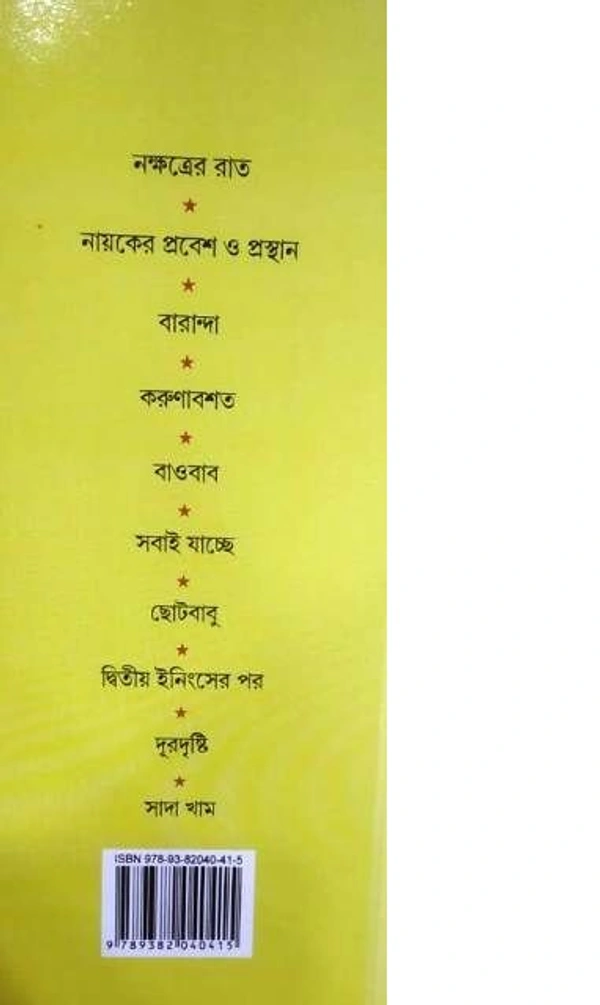 নক্ষত্রের রাত
নায়কের প্রবেশ ও প্রস্থান
বারান্দা
করুণাবশত
বাওবাব
সবাই যাচ্ছে
ছোটবাবু
দ্বিতীয় ইনিংসের পর
দূরদৃষ্টি
সাদা খাম
ISBN 978-93-82040-41-5
9 789382 040415